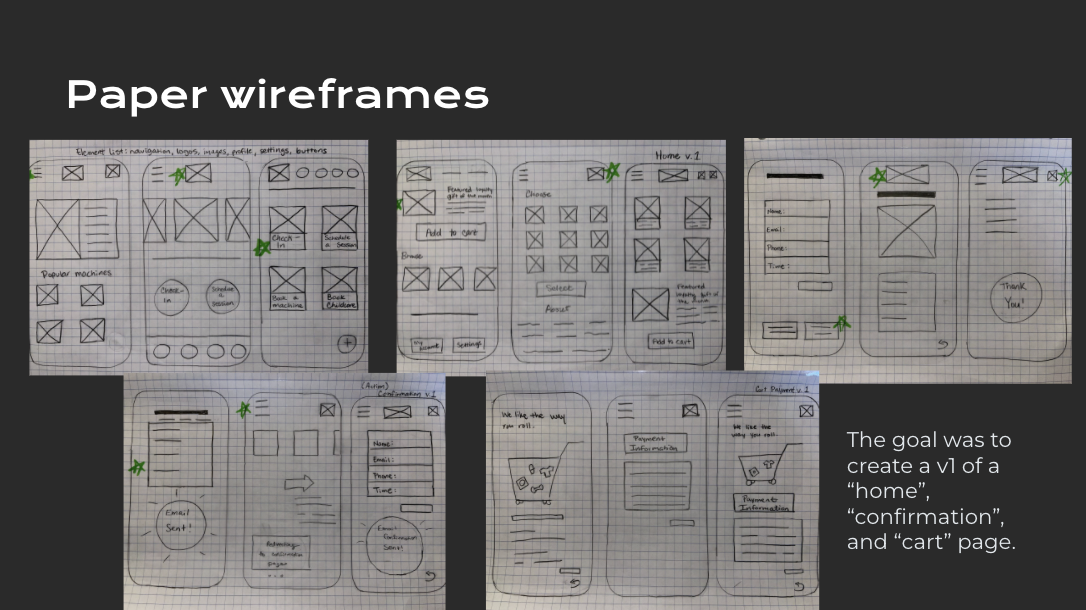 Paper wireframes
Element List: navigation, logos, images, profile, settings, buttons
Popular machines
Check-
In
Schedule
a
Session
Check-
In
Schedule
a Session
Book a
machine
Book
Childcare
+
Home v.1
Featured
gift of the month
Add to cart
Browse
My
account
Settings
Choose
Select
About
Featured
Add to cart
Name:
Email:
Phone:
Time:
Thank
You!
(Action)
Confirmation v.1
Email
Sent!
Name:
Email:
Phone:
Time:
Email
Confirmation
Sent!
Cart Payment v.1
We like the way
you roll.
Payment
Information
We like the
way you roll.
Payment
Information
The goal was to
create a v1 of a
“home”,
“confirmation”,
and “cart” page.